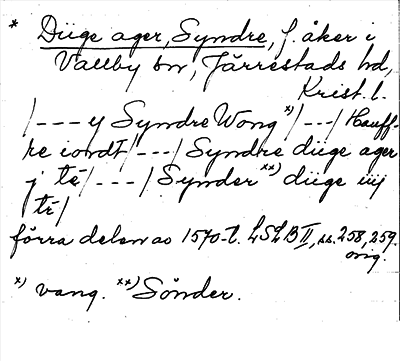 * Düge ager, Syndre, f. åker i
Vallby sn, Järrestads hd,
Krist. l.
/---y Syndre Wong x) /---/ Hauff-
re iordt /---/ Syndre düge ager
j tē /---/ Synder xx) düge iiij
tē /
förra delen av 1570-t. LSLB II, ss. 258, 259.
orig.
x) vang. xx) Sönder.